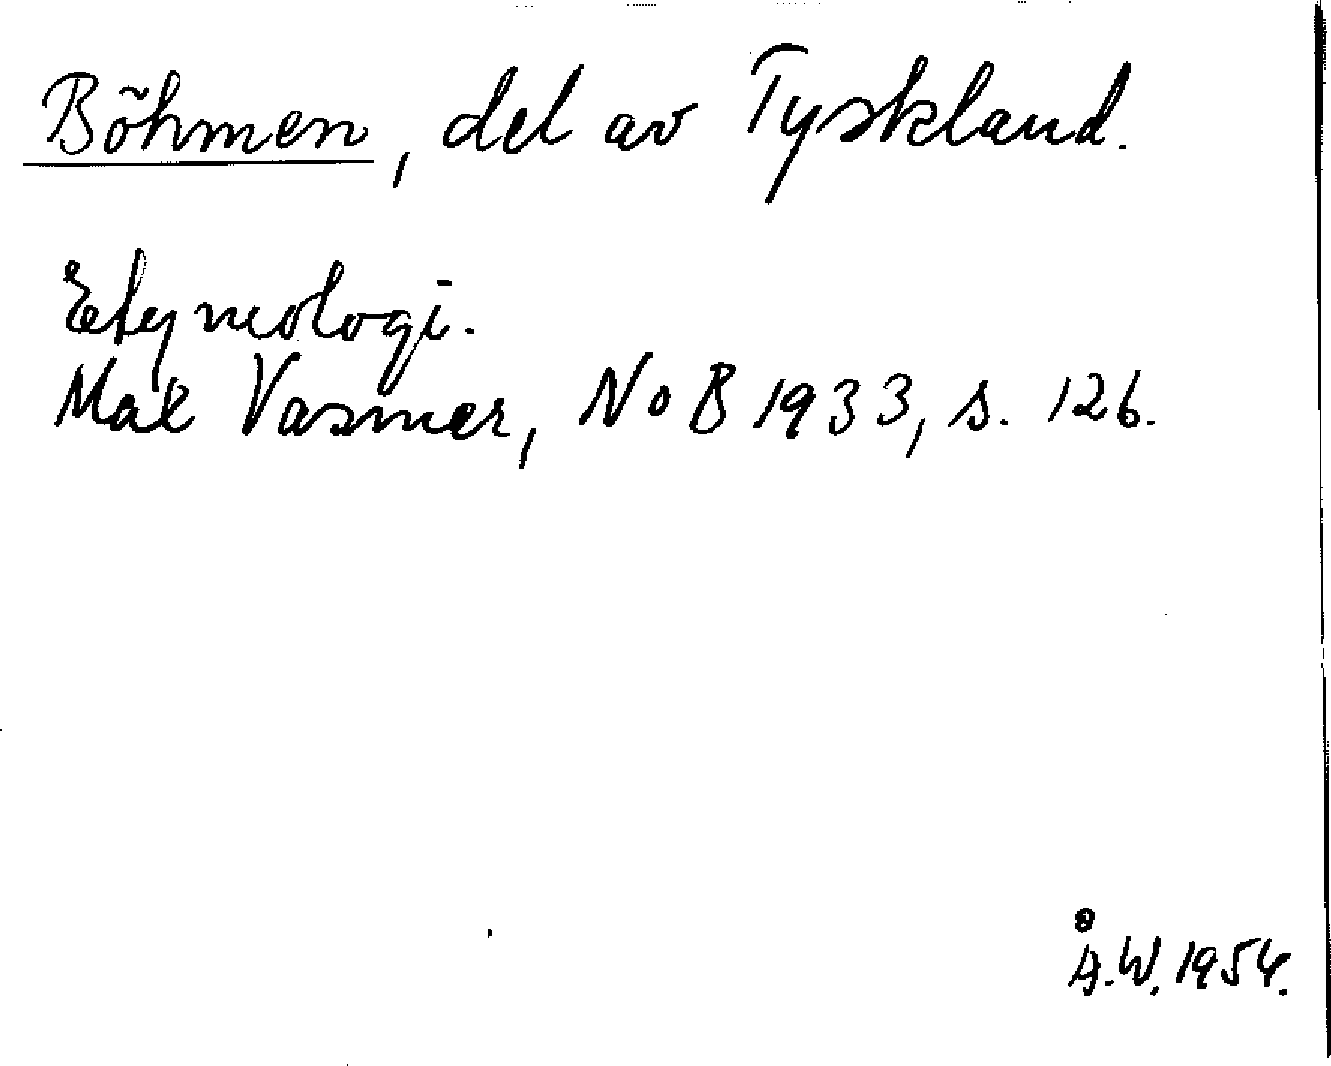 Böhmen, del av Tyskland.
Etymologi.
Max Vasmer, NoB 1933, s. 126.
Å.W. 1954.